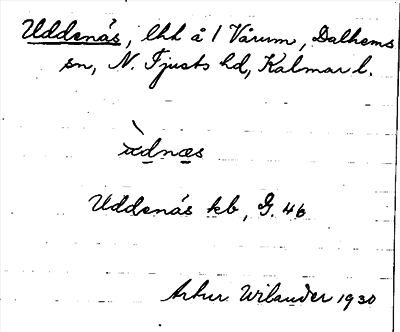 Uddenäs, lht å 1 Vårum, Dalhems
sn, N. Tjusts hd, Kalmar l.
ùdnæs
Uddenäs kb, G. 46
Artur Wilander 1930